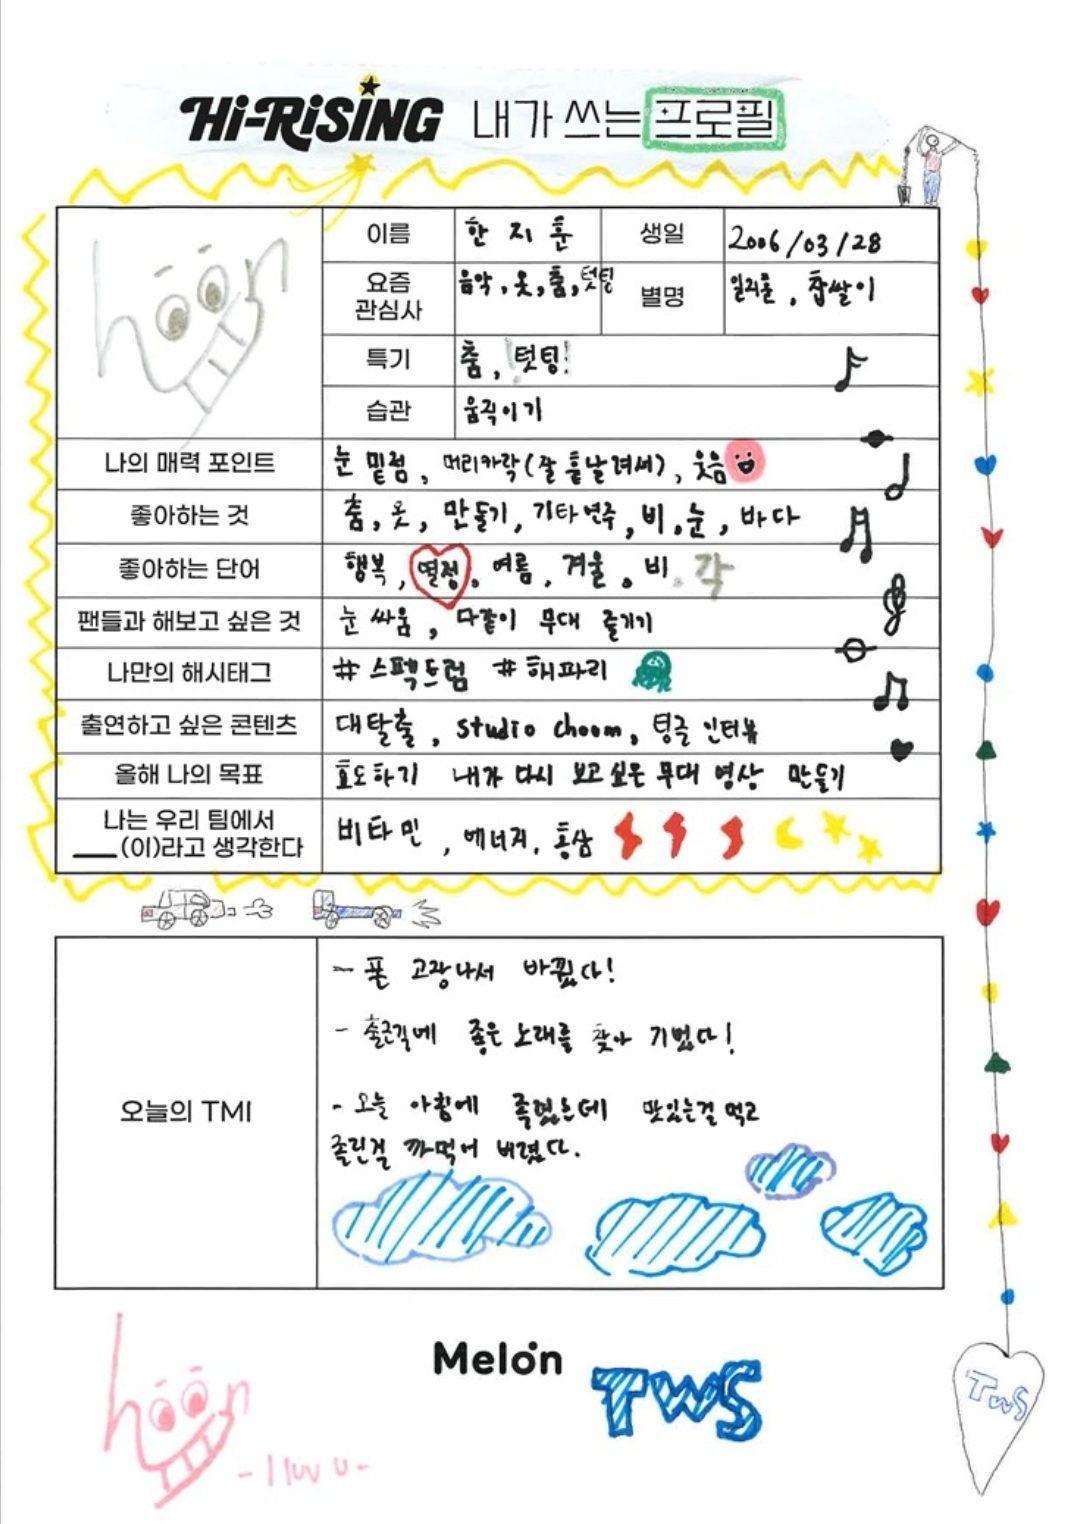 Hi-RiSiNG 내가 쓰는 프로필
hoon
이름 한지훈 생일 2006/03/28
요즘 관심사 음악, 옷, 춤, 텃팅 별명 일지훈, 찹쌀이
특기 춤, 텃팅!
습관 움직이기
나의 매력 포인트 눈 밑점, 머리카락(잘 흩날려서), 웃음
좋아하는 것 춤, 옷, 만들기, 기타연주, 비, 눈, 바다
좋아하는 단어 행복, 열정, 여름, 겨울, 비, 각
팬들과 해보고 싶은 것 눈 싸움, 다같이 무대 즐기기
나만의 해시태그 #스펙트럼 #해파리
출연하고 싶은 콘텐츠 대탈출, studio choom, 팅글 인터뷰
올해 나의 목표 효도하기 내가 다시 보고싶은 무대 영상 만들기
나는 우리 팀에서
___(이)라고 생각한다 비타민, 에너지, 홍삼
오늘의 TMI
- 폰 고장나서 바꿨다!
- 출근길에 좋은 노래를 찾아 기뻤다!
- 오늘 아침에 졸렸는데 맛있는걸 먹고
졸린걸 까먹어 버렸다.
Melon
TWS
TWS
hoon
- I luv u -